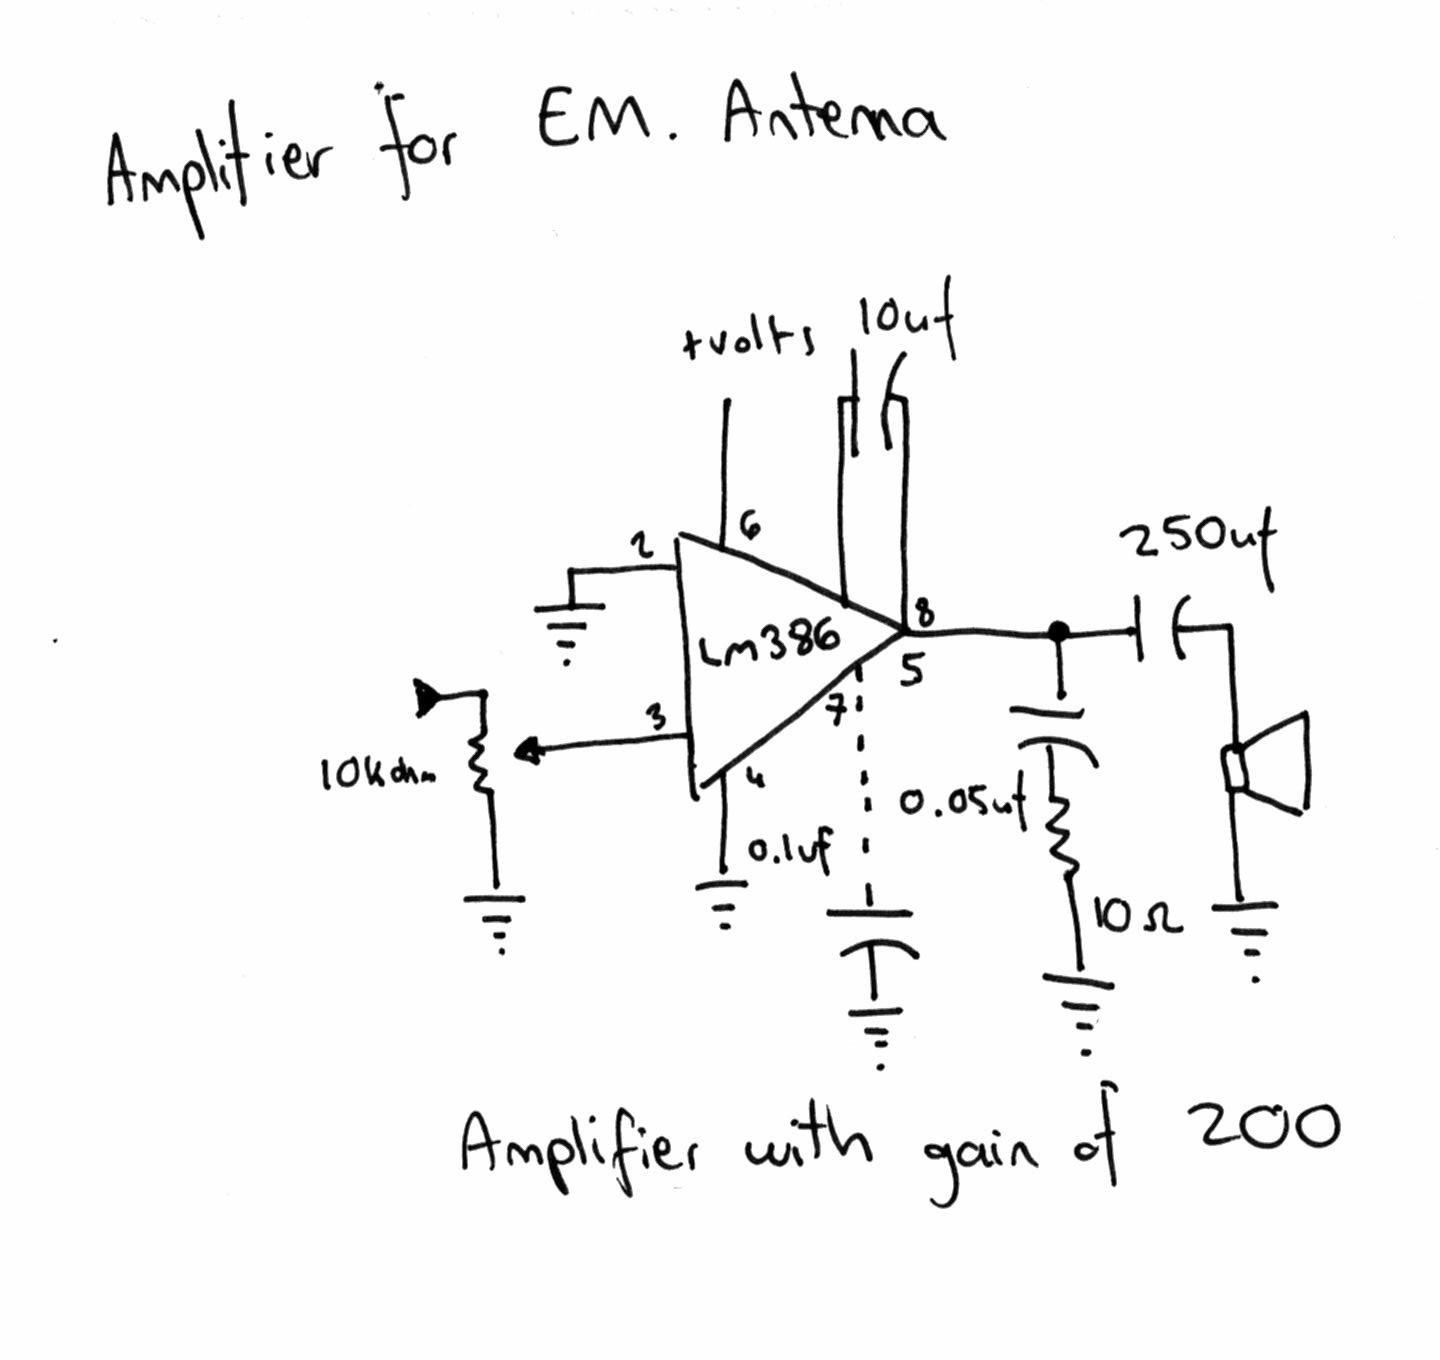 Amplifier for EM. Antenna
+volts 10uf
6
2
250uf
8
LM386
5
3
7
10Kohm
4
0.05uf
0.1uf
10Ω
Amplifier with gain of 200